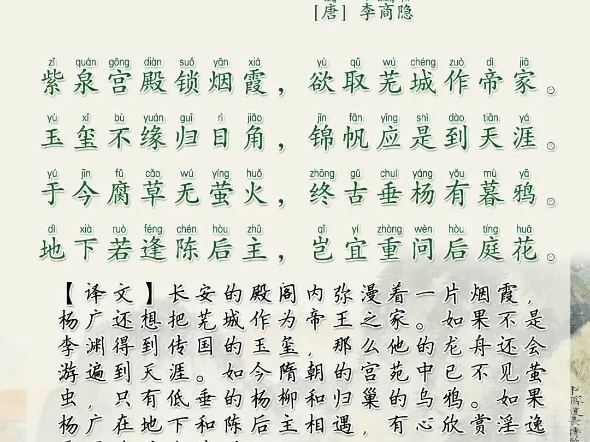 ［唐］李商隐
zǐ quán gōng diàn suǒ yān xiá yù qǔ wú chéng zuò dì jiā
紫泉宫殿锁烟霞，欲取芜城作帝家。
yù xǐ bù yuán guī rì jiǎo jǐn fān yīng shì dào tiān yá
玉玺不缘归日角，锦帆应是到天涯。
yú jīn fǔ cǎo wú yíng huǒ zhōng gǔ chuí yáng yǒu mù yā
于今腐草无萤火，终古垂杨有暮鸦。
dì xià ruò féng chén hòu zhǔ qǐ yí zhòng wèn hòu tíng huā
地下若逢陈后主，岂宜重问后庭花。
【译文】长安的殿阁内弥漫着一片烟霞，
杨广还想把芜城作为帝王之家。如果不是
李渊得到传国的玉玺，那么他的龙舟还会
游遍到天涯。如今隋朝的宫苑中已不见萤
虫，只有低垂的杨柳和归巢的乌鸦。如果
杨广在地下和陈后主相遇，有心欣赏淫逸